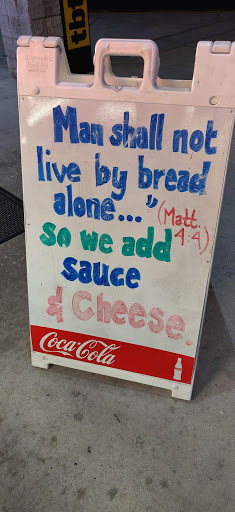 tbt
Man shall not
live by bread
alone..." (Matt.
4:4)
so we add
sauce
& Cheese.
Coca-Cola